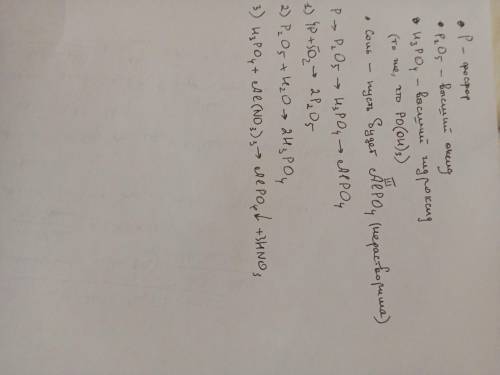 • P – фосфор
• P₂O₅ – высший оксид
• H₃PO₄ – высший гидроксид
(то же, что PO(OH)₃)
• Соль – пусть будет AlPO₄ (нерастворима)
III
P → P₂O₅ → H₃PO₄ → AlPO₄
1) 4P + 5O₂ → 2P₂O₅
2) P₂O₅ + H₂O → 2H₃PO₄
3) H₃PO₄ + Al(NO₃)₃ → AlPO₄↓ + 3HNO₃